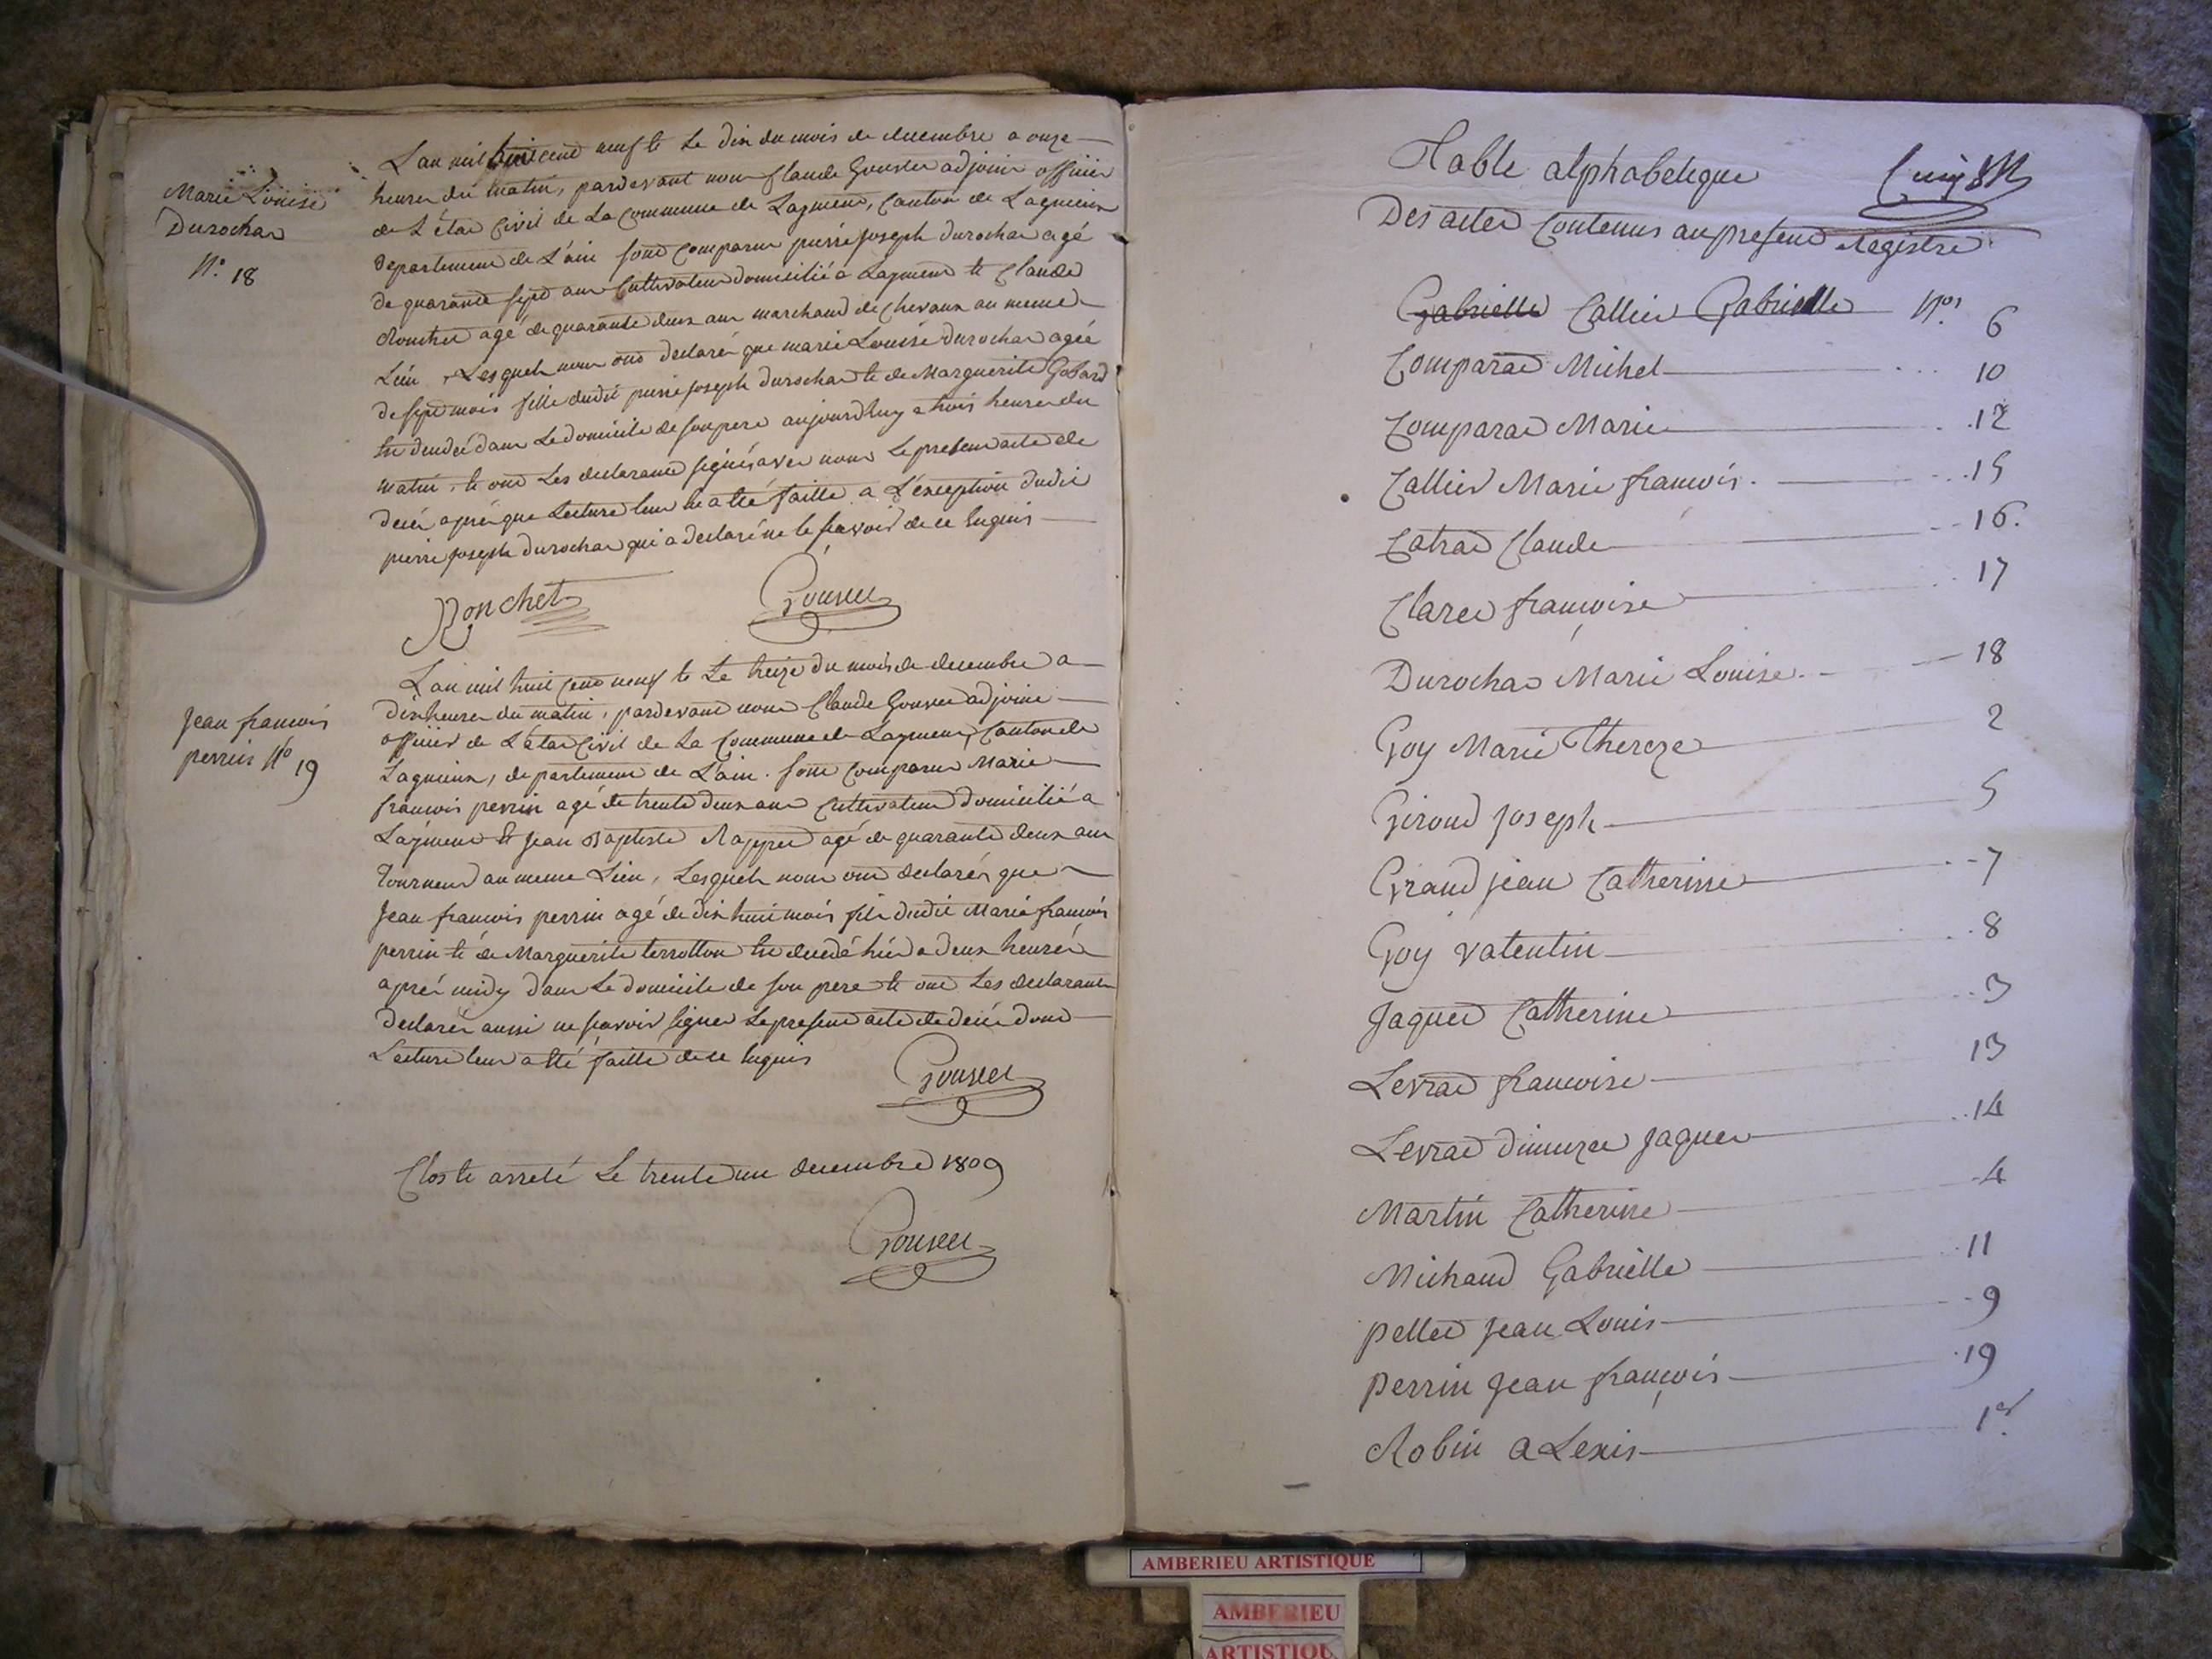 Marie Louise
Durochat
N.º 18
L'an mil huit cent neuf et le dix du mois de decembre a onze
heures du matin, pardevant nous Claude Gouvet adjoint officier
de L'état Civil de La Commune de Lagnieu, Canton de Lagnieux
departement de L'ain sont Comparus pierre joseph durochat agé
de quarante sept ans Cultivateur domicilié a et Claude
Ronchet agé de quarante deux ans marchand de Chevaux au meme
Lieu, Lesquels nous ont declarés que marie Louise durochat agée
de sept mois fille dudit pierre joseph durochat et de Marguerite Gobard
est decedée dans Le domicile de son pere aujourd'huy a trois heures du
matin, et ont Les declarants signés avec nous Le present acte de
decés aprés que Lecture leur en a eté faitte a L'exception dudit
pierre joseph durochat qui a declaré ne le sçavoir de ce Enquis
Ronchet Gouvet
Jean francois
perrin Nº 19
L'an mil huit cent neuf et Le treize du mois de decembre a
dix heures du matin, pardevant nous Claude Gouvet adjoint
officier de L'état Civil de La Commune de Canton de
Lagnieux, departement de L'ain. sont Comparus Marie
francois perrin agé de trente deux ans Cultivateur domicilié a
et Jean Baptiste Rappet agé de quarante deux ans
Tourneur au meme Lieu, Lesquels nous ont declarés que
Jean francois perrin agé de dix huit mois fils dudit Marie francois
perrin et de Marguerite terrotton est decedé hier a deux heures
aprés midy dans Le domicile de son pere et ont Les declarants
declarés aussi ne sçavoir signer Le present acte de decés dont
Lecture leur a eté faitte de ce Enquis
Gouvet
Clos et arreté Le trente un decembre 1809
Gouvet
Table alphabetique
Des actes Contenus au present Registre
Gabrielle Callier Gabrielle Nos 6
Comparat Michel 10
Comparat Marie 12
Callier Marie francois 15
Catrat Claude 16.
Claret françoise 17
Durochat Marie Louise 18
Goy Marie Thereze 2
Giroud Joseph 5
Grand jean Catherine 7
Goy Valentin 8
Jaquet Catherine 3
Levrat francoise 13
Levrat dimuzet Jaques 14
Martin Catherine 4
Michaud Gabrielle 11
Pellet Jean Louis 9
Perrin Jean françois 19
Robin aLexis 1er
AMBERIEU ARTISTIQUE
AMBERIEU
ARTISTIQU